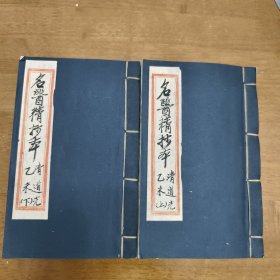 名醫精抄本
清道光
乙未(上)
名醫精抄本
清道光
乙未(下)